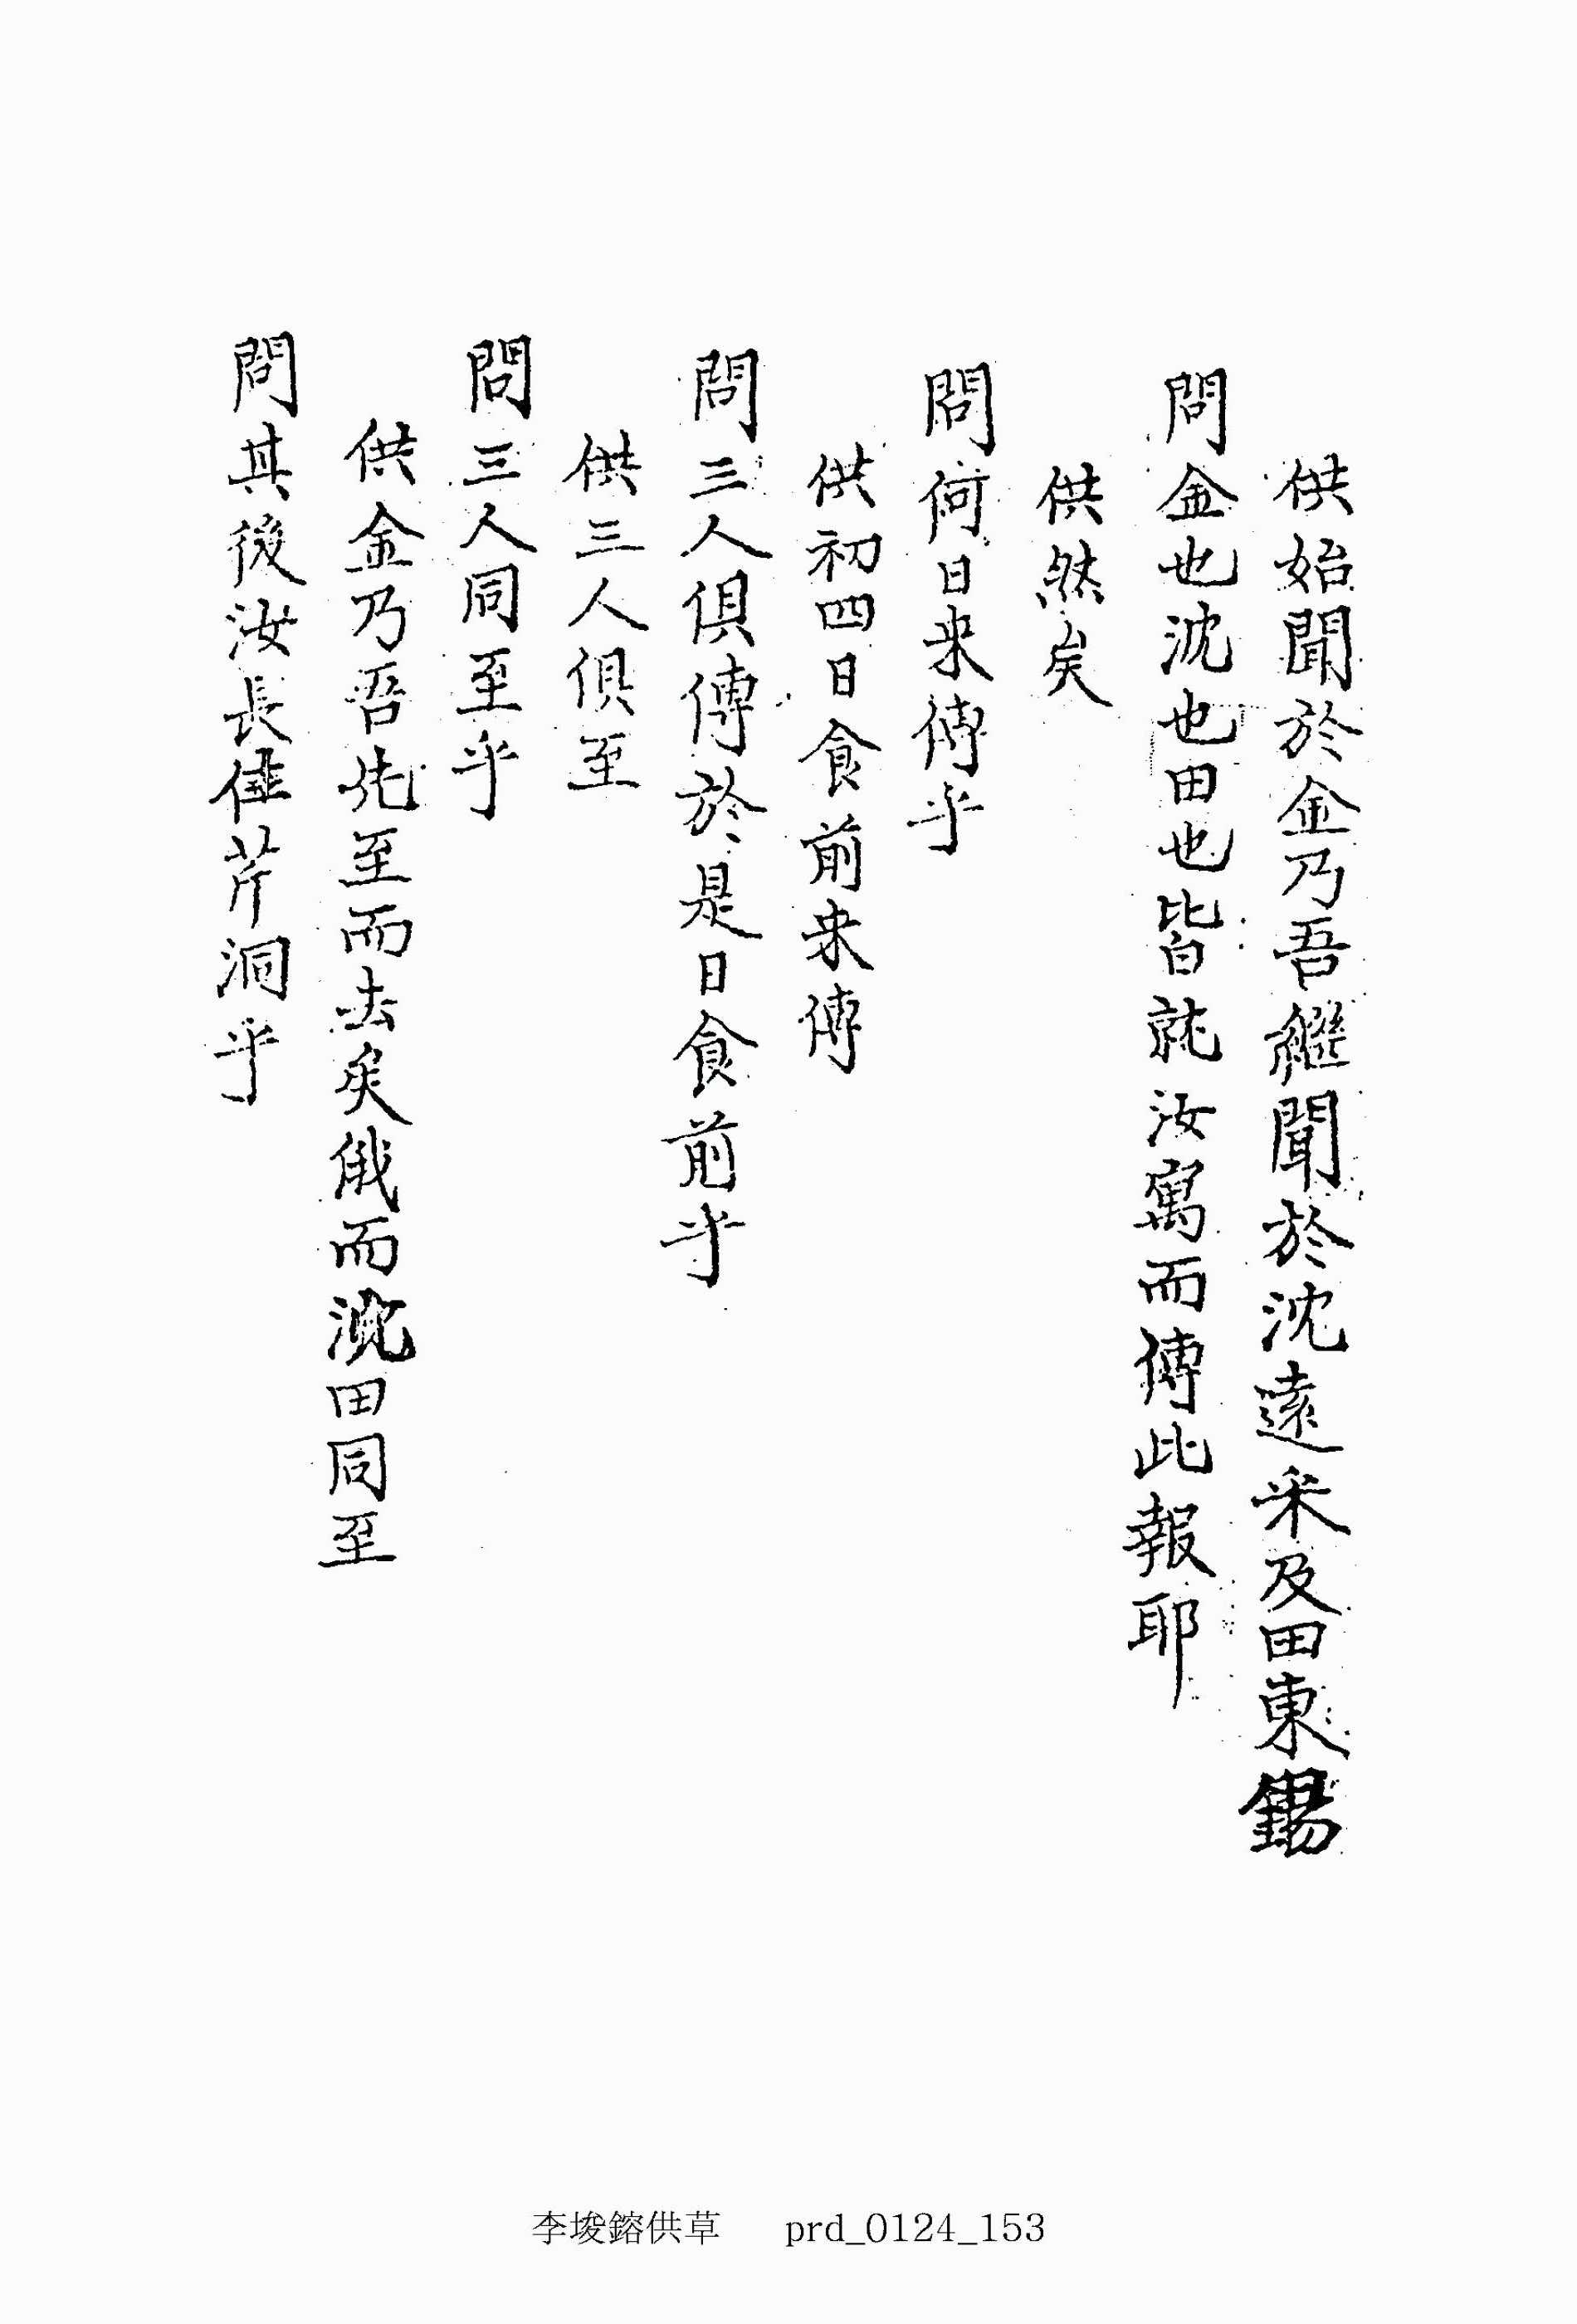 供始聞於金乃吾繼聞於沈遠采及田東錫
問金也沈也田也皆就汝寓而傳此報耶
供然矣
問何日来傳乎
供初四日食前来傳
問三人俱傳於是日食前乎
供三人俱至
問三人同至乎
供金乃吾先至而去矣俄而沈田同至
問其後汝長住芹洞乎
李埈鎔供草 prd_0124_153